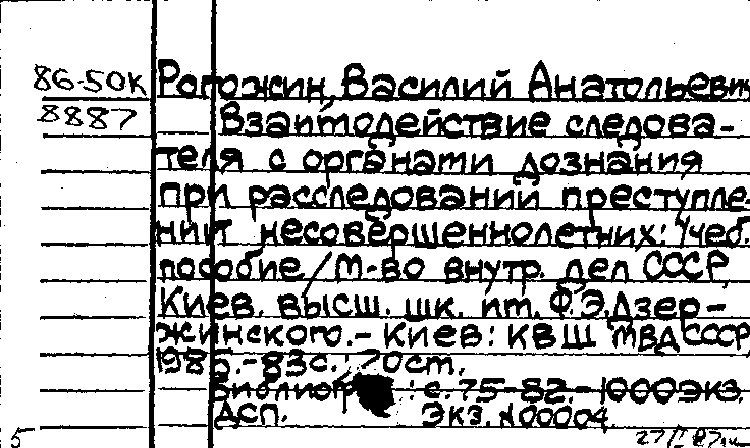 86-50К Рогожин, Василий Анатольевич
8887 Взаимодействие следова-
теля с органами дознания
при расследовании преступле-
ний несовершеннолетних: Учеб.
пособие / М-во внутр. дел СССР,
Киев. высш. шк. им. Ф.Э.Дзер-
жинского.- Киев: КВШ МВД СССР,
1985.-83с.; 20см.
Библиогр.: с.75-82.- 1000экз.
ДСП. Экз. №00004.
5